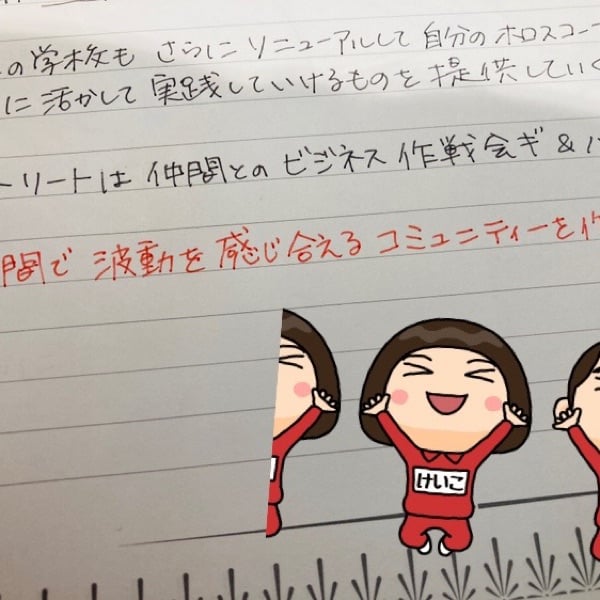 の学校も さらにリニューアルして 自分の ホロスコー
に 活かして 実践していけるものを 提供していく
トリートは 仲間との ビジネス 作戦会ギ &
間で 波動を 感じ合える コミュニティーを作
けいこ